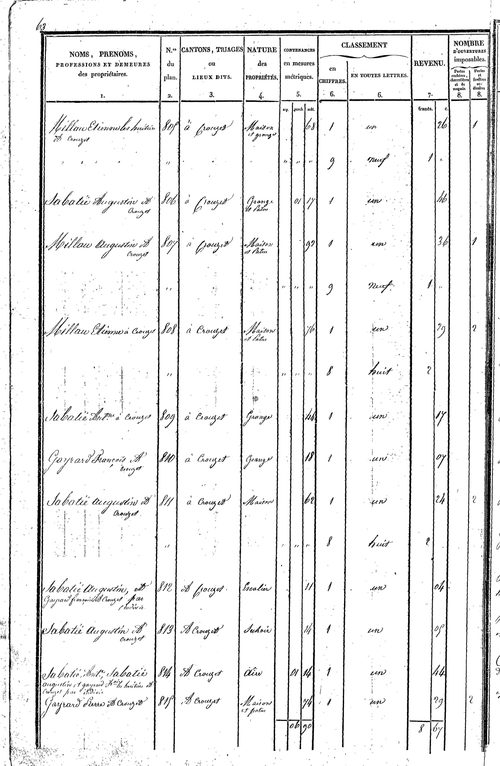 NOMS, PRENOMS, PROFESSIONS ET DEMEURES des propriétaires. N.os du plan. CANTONS, TRIAGES ou LIEUX DITS. NATURE des PROPRIÉTÉS. CONTENANCES en mesures métriques. CLASSEMENT en CHIFFRES. EN TOUTES LETTRES. REVENU. NOMBRE D'OUVERTURES imposables.
1. 2. 3. 4. 5. 6. 6. 7. 8. 8.
francs. c.
Millau Etienne les heritiers 805 à Crouzet Maison 68 1 un 26 1
à Crouzet et grange
" " " " 9 neuf 1 "
Sabatié Augustin à 806 à Crouzet Grange 01 17 1 un 46
Crouzet et Patus
Millau Augustin à 807 à Crouzet Maison 90 1 un 36 1
Crouzet et Patus
" " " " 9 neuf 1 "
Millau Etienne à Crouzet 808 à Crouzet Maison 76 1 un 29 2
et Patus
" " " " 8 huit 2
Sabatié Ant.ne à Crouzet 809 à Crouzet Grange 44 1 un 17
Gayrard François à 810 à Crouzet Grange 18 1 un 07
Crouzet
Sabatié Augustin à 811 à Crouzet Maison 62 1 un 24 2
Crouzet
" " " " 8 huit 2
Sabatié Augustin, et 812 à Crouzet 11 1 un 04
Gayrard françois à Crouzet par
indivis
Sabatié Augustin à 813 à Crouzet 14 1 un 05
Crouzet
Sabatié Ant.ne, Sabatié 814 à Crouzet Aire 01 14 1 un 44
Augustin et gayrard les heritiers à
Crouzet par indivis
Gayrard Pierre à Crouzet 815 à Crouzet Maison 76 1 un 29 2
et patus
06 90 8 67